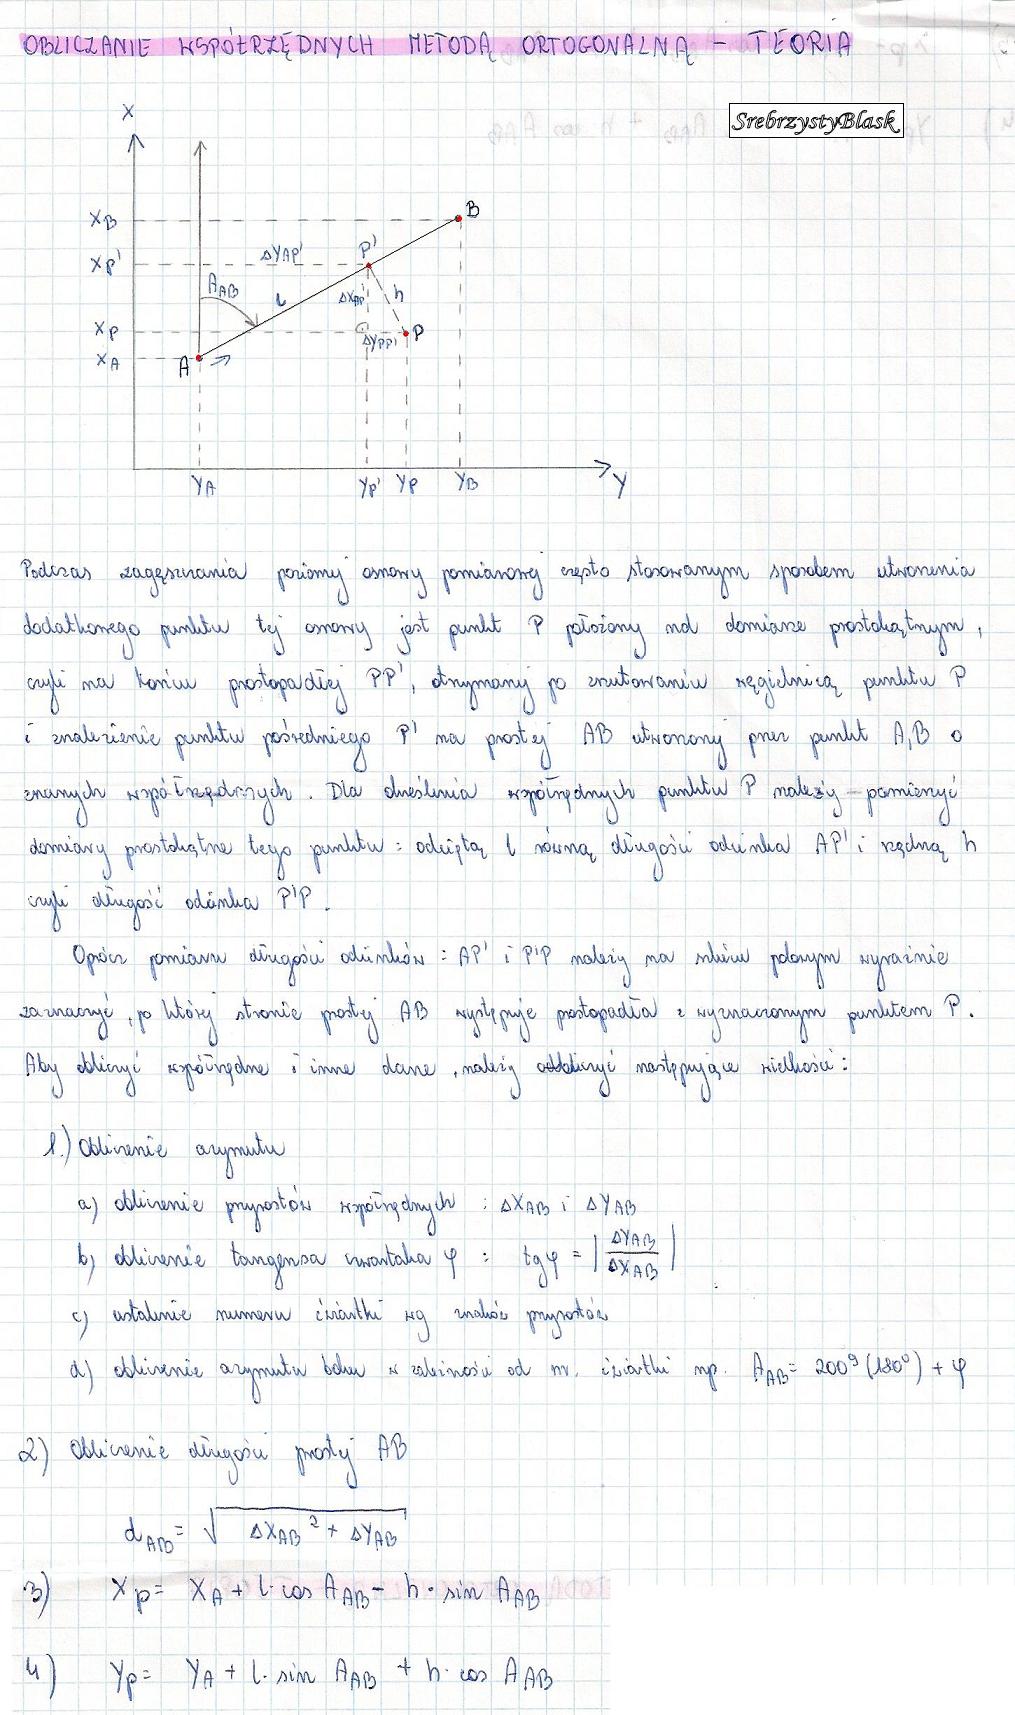 OBLICZANIE WSPÓŁRZĘDNYCH METODĄ ORTOGONALNĄ - TEORIA
SrebrzystyBlask
X
XB
B
XP'
ΔYAP'
P'
AAB
l
ΔXAP'
h
XP
P
ΔYPP'
XA
A
YA
YP'
YP
YB
Y
Podczas zagęszczania poziomej osnowy pomiarowej często stosowanym sposobem utworzenia
dodatkowego punktu tej osnowy jest punkt P położony na domiarze prostokątnym,
czyli na końcu prostopadłej PP', otrzymany po zrzutowaniu węgielnicą punktu P
i znalezienie punktu pośredniego P' na prostej AB utworzony przez punkt A,B o
znanych współrzędnych. Dla określenia współrzędnych punktu P należy pomierzyć
domiary prostokątne tego punktu: odciętą l równą długości odcinka AP' i rzędną h
czyli długość odcinka P'P.
Oprócz pomiaru długości odcinków: AP' i P'P należy na szkicu polowym wyraźnie
zaznaczyć, po której stronie prostej AB występuje prostopadła z wyznaczonym punktem P.
Aby obliczyć współrzędne i inne dane, należy obliczyć następujące wielkości:
1.) Obliczenie azymutu
a) obliczenie przyrostów współrzędnych : ΔXAB i ΔYAB
b) obliczenie tangensa czwartaka φ : tgφ = |ΔYAB / ΔXAB|
c) ustalenie numeru ćwiartki wg znaków przyrostów
d) obliczenie azymutu boku w zależności od nr. ćwiartki np. AAB = 200g (180°) + φ
2) Obliczenie długości prostej AB
dAB = √ ΔXAB² + ΔYAB
3) XP = XA + l·cos AAB - h·sin AAB
4) YP = YA + l·sin AAB + h·cos AAB